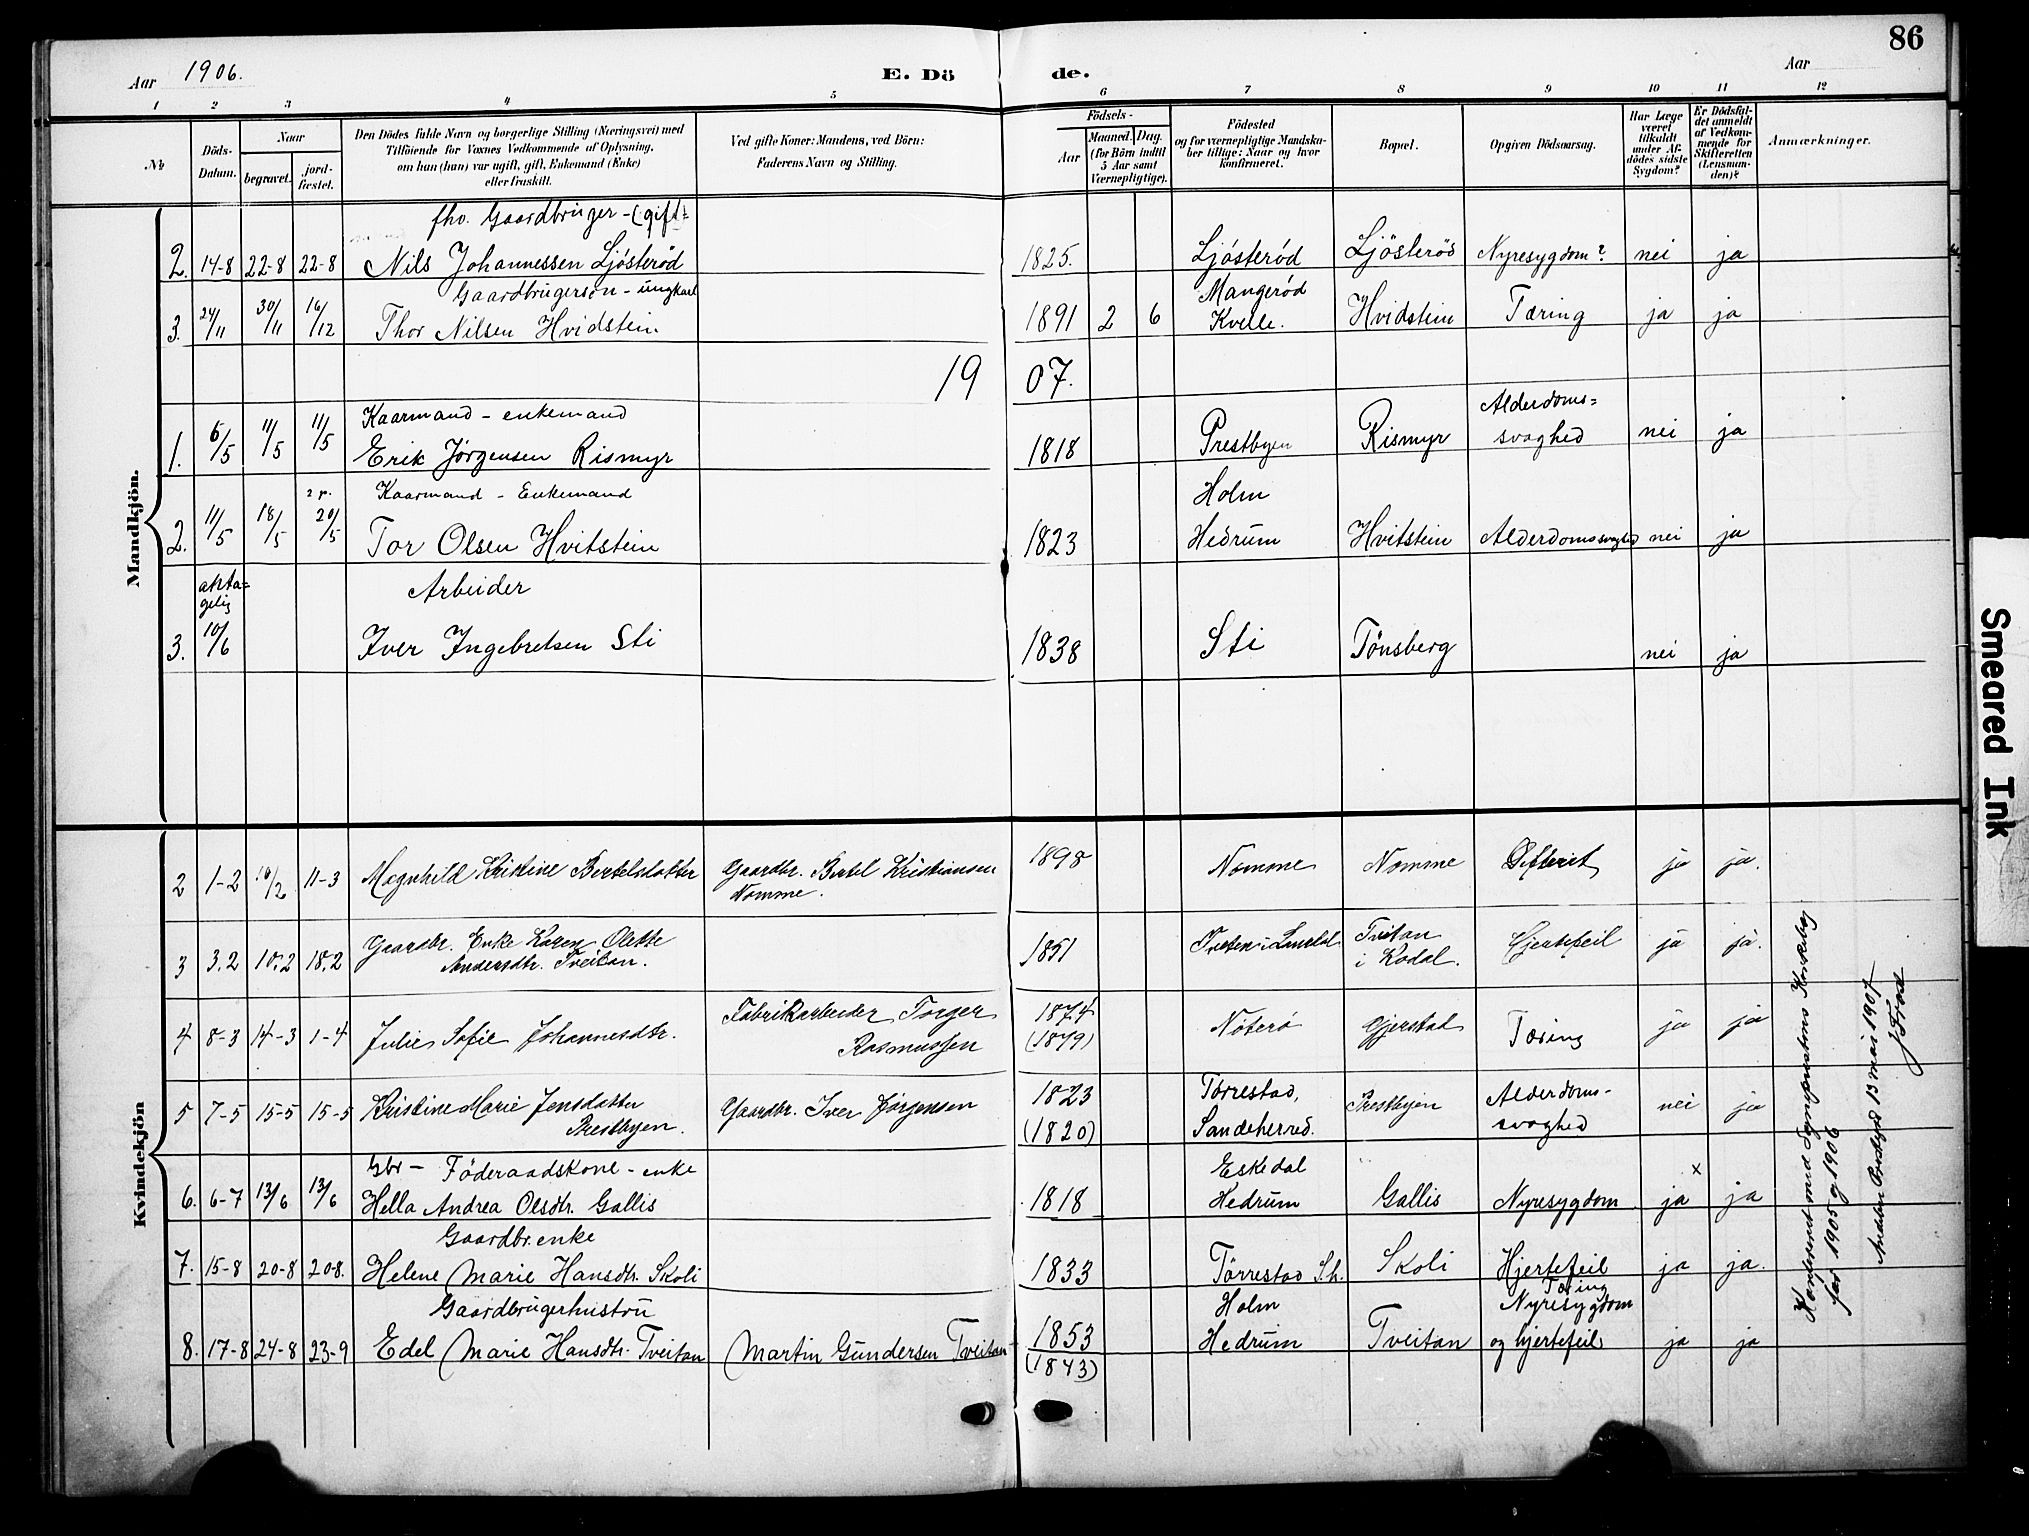 86
Aar 1906.
E. Dö de.
Aar
1 2 3 4 5 6 7 8 9 10 11 12
No
Döds-Datum.
Naar
begravet. jord-fæstet.
Den Dödes fulde Navn og borgerlige Stilling (Næringsvei) med
Tilföiende for Voxnes Vedkommende af Oplysning,
om hun (han) var ugift, gift, Enkemand (Enke)
eller fraskilt.
Ved gifte Koner: Mandens, ved Börn:
Faderens Navn og Stilling.
Födsels-
Aar Maaned. Dag.
(for Börn indtil
5 Aar samt
Værnepligtige).
Födested
og for værnepligtige Mandska-
ber tillige: Naar og hvor
konfirmeret.
Bopæl.
Opgiven Dödsaarsag.
Har Læge
været
tilkaldt
under Af-
dödes sidste
Sygdom?
Er Dödsfal-
det anmeldt
af Vedkom-
mende for
Skifteretten
(Lensman-
den)?
Anmærkninger.
Mandkjön.
fhv. Gaardbruger - (gift-
2. 14-8 22-8 22-8 Nils Johannessen Ljösteröd 1825. Ljösteröd Ljösteröd Nyresygdom? nei ja
Gaardbrugersön - ungkarl
3. 24/11 30/11 16/12 Thor Nilsen Hvidstein 1891 2 6 Mangeröd Kvelle. Hvidstein Tæring ja ja
19 07.
Kaarmand - enkemand
1. 5/5 11/5 11/5 Erik Jörgensen Rismyr 1818 Prestbyen Rismyr Alderdoms= svaghed nei ja
2 p. Kaarmand - Enkemand
2. 11/5 18/5 20/5 Tor Olsen Hvitstein 1823 Holm Hedrum Hvitstein Alderdomssvaghed nei ja
Arbeider
3. 10/6 Iver Ingebretsen Sti 1838 Sti Tönsberg nei ja
Kvindekjön
2 1-2 10/2 11-3 Magnhild Kristine Bertelsdatter Gaardbr. Bertel Kristiansen Nomme. 1898 Nomme Nomme Difterit ja ja.
3 3.2 10.2 18.2 Gaardbr. Enke Karen Olette Andersdtr. Tveitan. 1851 Tveitan i Kodal. Hjertefeil ja ja.
4 8-3 14-3 1-4 Julie Sofie Johannesdtr. Fabrikarbeider Torger Rasmussen 1874 (1879) Nöterö Gjerstad Tæring ja ja
5 7-5 15-5 15-5 Kristine Marie Jensdatter Prestbyen. Gaardbr. Iver Jörgensen 1823 (1820) Torrestad, Sandeherred. Prestbyen Alderdoms-svaghed nei ja
Gbr - Föderaadskone - enke
6. 6-7 13/6 13/6 Hella Andrea Olsdtr. Gallis 1818 Eskedal Hedrum Gallis Nyresygdom x ja ja
Gaardbr. enke
7. 15-8 20-8 20-8. Helene Marie Hansdtr. Skoli 1833 Törrestad Sh. Skoli Hjertefeil ja ja.
Gaardbrugerhustru
8. 17-8 24-8 23-9 Edel Marie Hansdtr. Tveitan Martin Gundersen Tveitan 1853 (1843) Holm Hedrum Tveitan Tæring Nyresygdom og hjertefeil ja ja
for 1905 og 1906
13 mai 1907
Smeared Ink